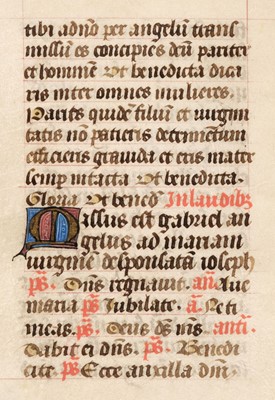 tibi a dn̄o per angelū trans
missū es concipies deū pariter
et hominem Ut benedicta dica
ris inter omnes mulieres.
Paries quidē filiū et virgini
tatis nō patieris detrimentum
efficieris gravida et eris mater
semp intacta Ut benedicta.
Gloria Ut bened̄ In laudibus
Missus est gabriel an
gelus ad mariam
virginē desponsatā ioseph
ps̄. Dn̄s regnavit. an̄. Ave
maria ps̄ Jubilate. a. Ne ti
meas. ps̄. Deus ds̄ ms̄ anti.
Dabit ei dn̄s. ps̄. Benedi
cite ps̄ Ecce ancilla dn̄i